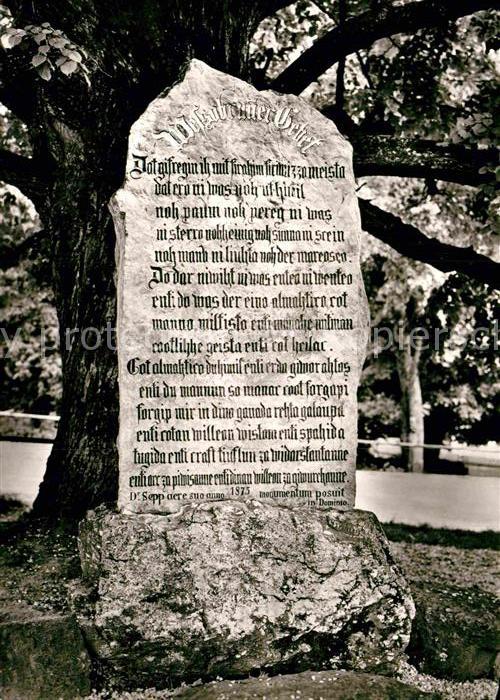 Wessobrunner Gebet
Dat gifregin ih mit firahim firiwizzo meista
dat ero ni was noh ufhimil
noh paum noh pereg ni was
ni sterro nohheinig noh sunna ni scein
noh mano ni liuhta noh der mareoseo.
Do dar niwiht ni was enteo ni wenteo
enti do was der eino almahtico cot
manno miltisto enti manake mitman
cootlihhe geista enti cot heilac.
Cot almahtico du himil enti erda giworahtos
enti du mannun so manac coot forgapi
forgip mir in dino ganada rehta galaupa
enti cotan willeon wistom enti spahida
tugida enti craft tiuflun za widarstantanne
enti arc za piwisanne enti dinan willeon za giwurchanne.
Dr. Sepp aere suo anno 1875 monumentum posuit
in Domino